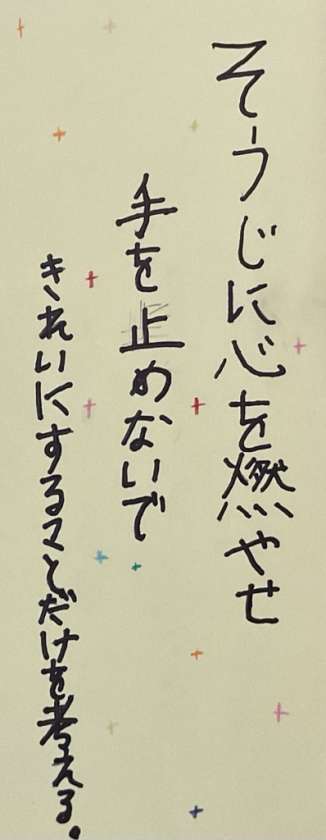 そうじに心を燃やせ
手を止めないで
きれいにすることだけを考える。